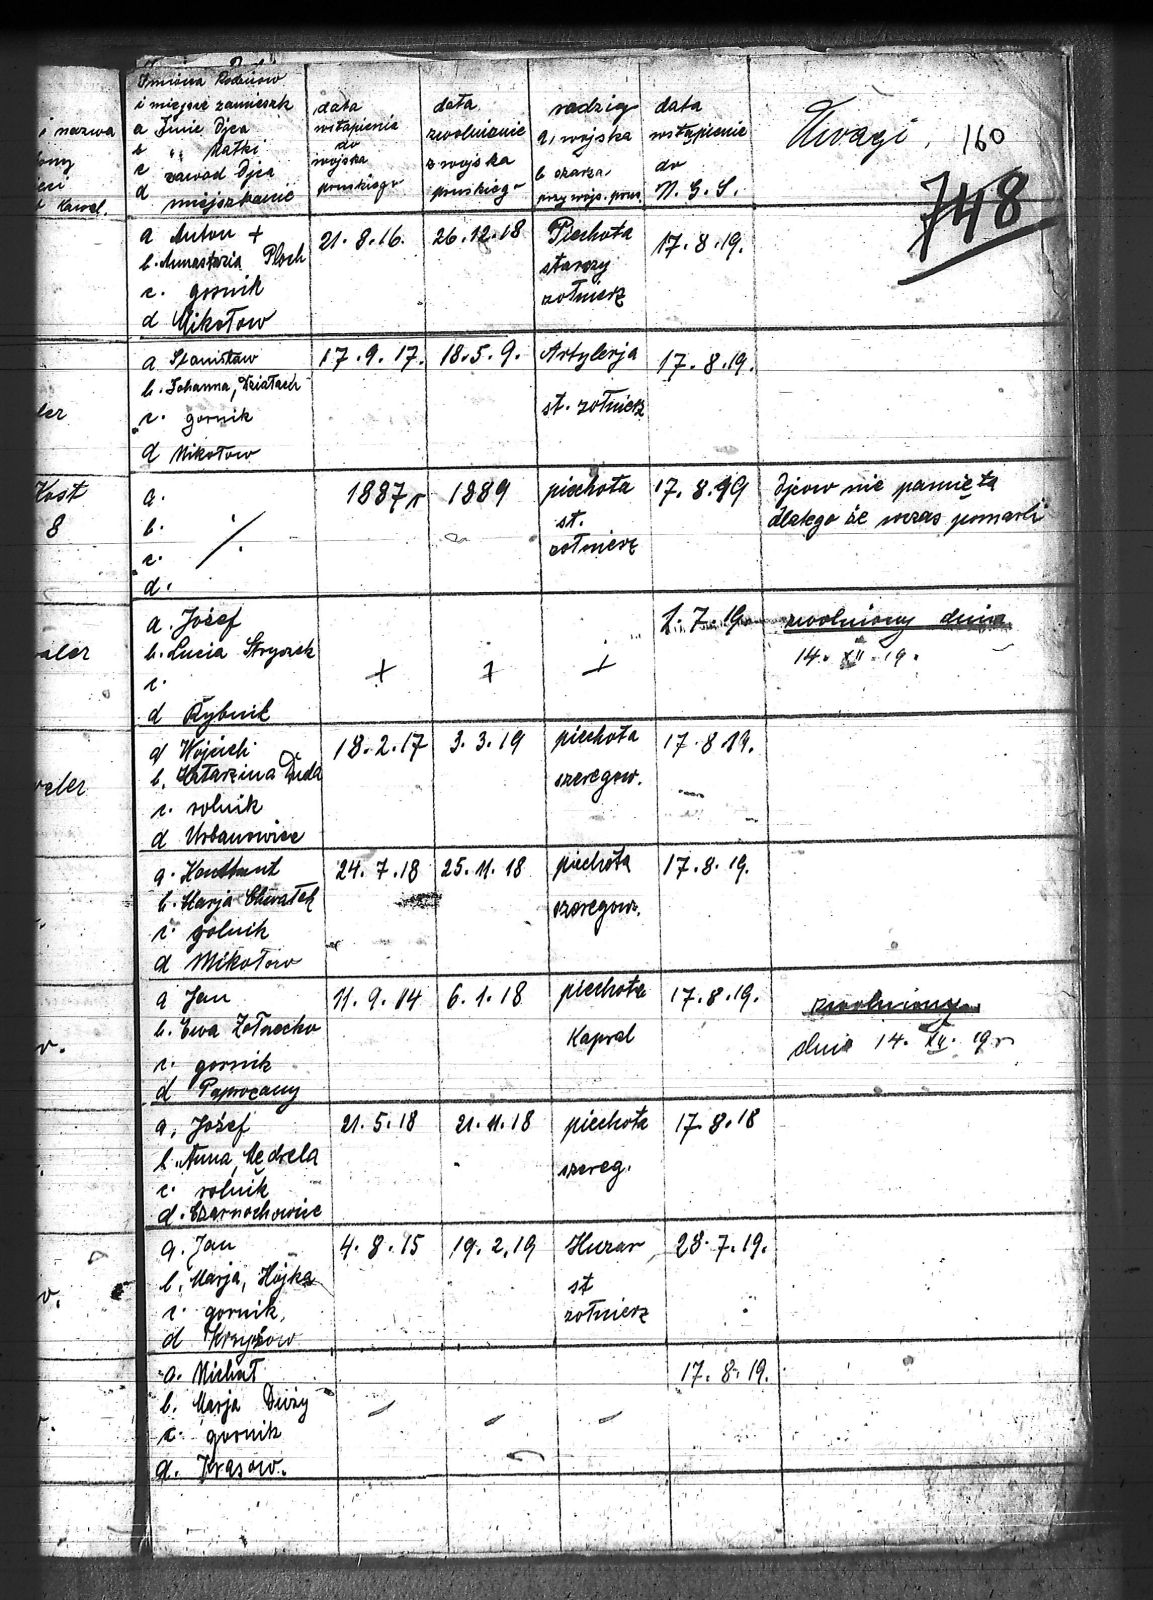 Imiona Rodziców
i miejsce zamieszk
a Imie Ojca
b " Matki
c zawod Ojca
d miejszkanie
i nazwa
Kawal.
data
wstąpienia
do
wojska
pruskiego
data
zwolnienie
z wojska
pruskiego
rodzig
a, wojska
b szarza
przy wojs. prus.
data
wstąpienie
do
N. G. S.
Uwagi. 160
748
a Anton +
b. Annastazia Ploch
c. gornik
d Mikołow
21. 8. 16.
26. 12. 18
Piechota
starszy
żołnierz
17. 8. 19.
a Stanisław
b. Johanna,
c. gornik
d Mikołow
17. 9. 17.
18. 5. 9.
Artylerja
st. żołnierz
17. 8. 19.
Kost
8
a.
b.
c.
d.
1887 r
1889
piechota
st.
żołnierz
17. 8. 19
Ojcow nie pamięta
dlatego że wczas pomarli
a. Józef
b. Lucia Stryczek
c.
d Rybnik
+ + +
1. 7. 19
zwolniony dnia
14. XII. 19.
a Wojciech
b. Katarzina Duda
c. rolnik
d Urbanowice
18. 2. 17
3. 3. 19
piechota
szeregow.
17. 8 19.
a.
b. Marja Chwałek
c. rolnik
d Mikołow
24. 7. 18
25. 11. 18
piechota
szeregow.
17. 8. 19.
a Jan
b. Ewa
c. gornik
d Paprocany
11. 9. 14
6. 1. 18
piechota
Kapral
17. 8. 19.
zwolniony
dnia 14. XII. 19 r
a, Józef
b. Anna, Medrela
c. rolnik
d. Czarnochowice
21. 5. 18
21. 11. 18
piechota
szereg.
17. 8. 18
a. Jan
b, Marja, Hojka
c. gornik,
d Krzyżow
4. 8. 15
19. 2. 19
Huzar
st
żołnierz
28. 7. 19.
a. Michał
b. Marja Duży
c. gornik
d. Krasow.
17. 8. 19.